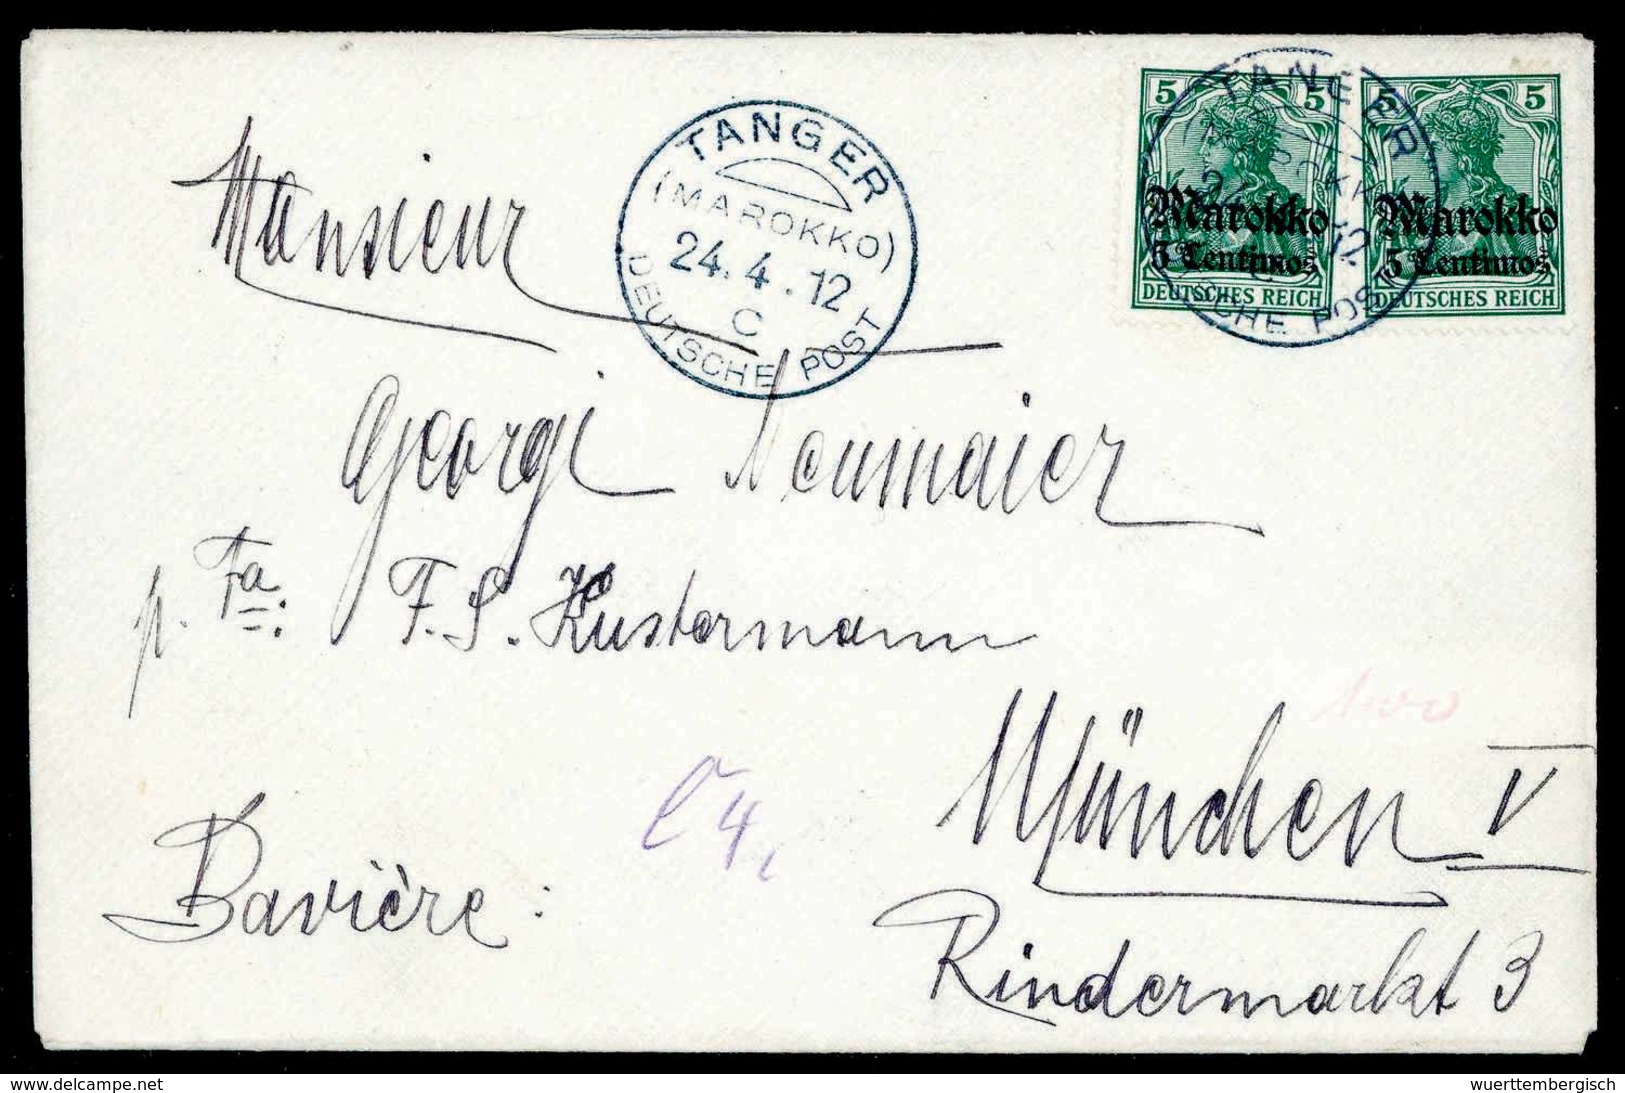 TANGER
(MAROKKO)
24.4.12
C
DEUTSCHE POST
TANGER
DEUTSCHE POST
5 5
Marokko
5 Centimos
DEUTSCHES REICH
5 5
Marokko
5 Centimos
DEUTSCHES REICH
Monsieur
Georg Neumaier
p. Fa: F. S. Kustermann
München V
Bavière:
Rindermarkt 3
www.delcampe.net
wuerttembergisch